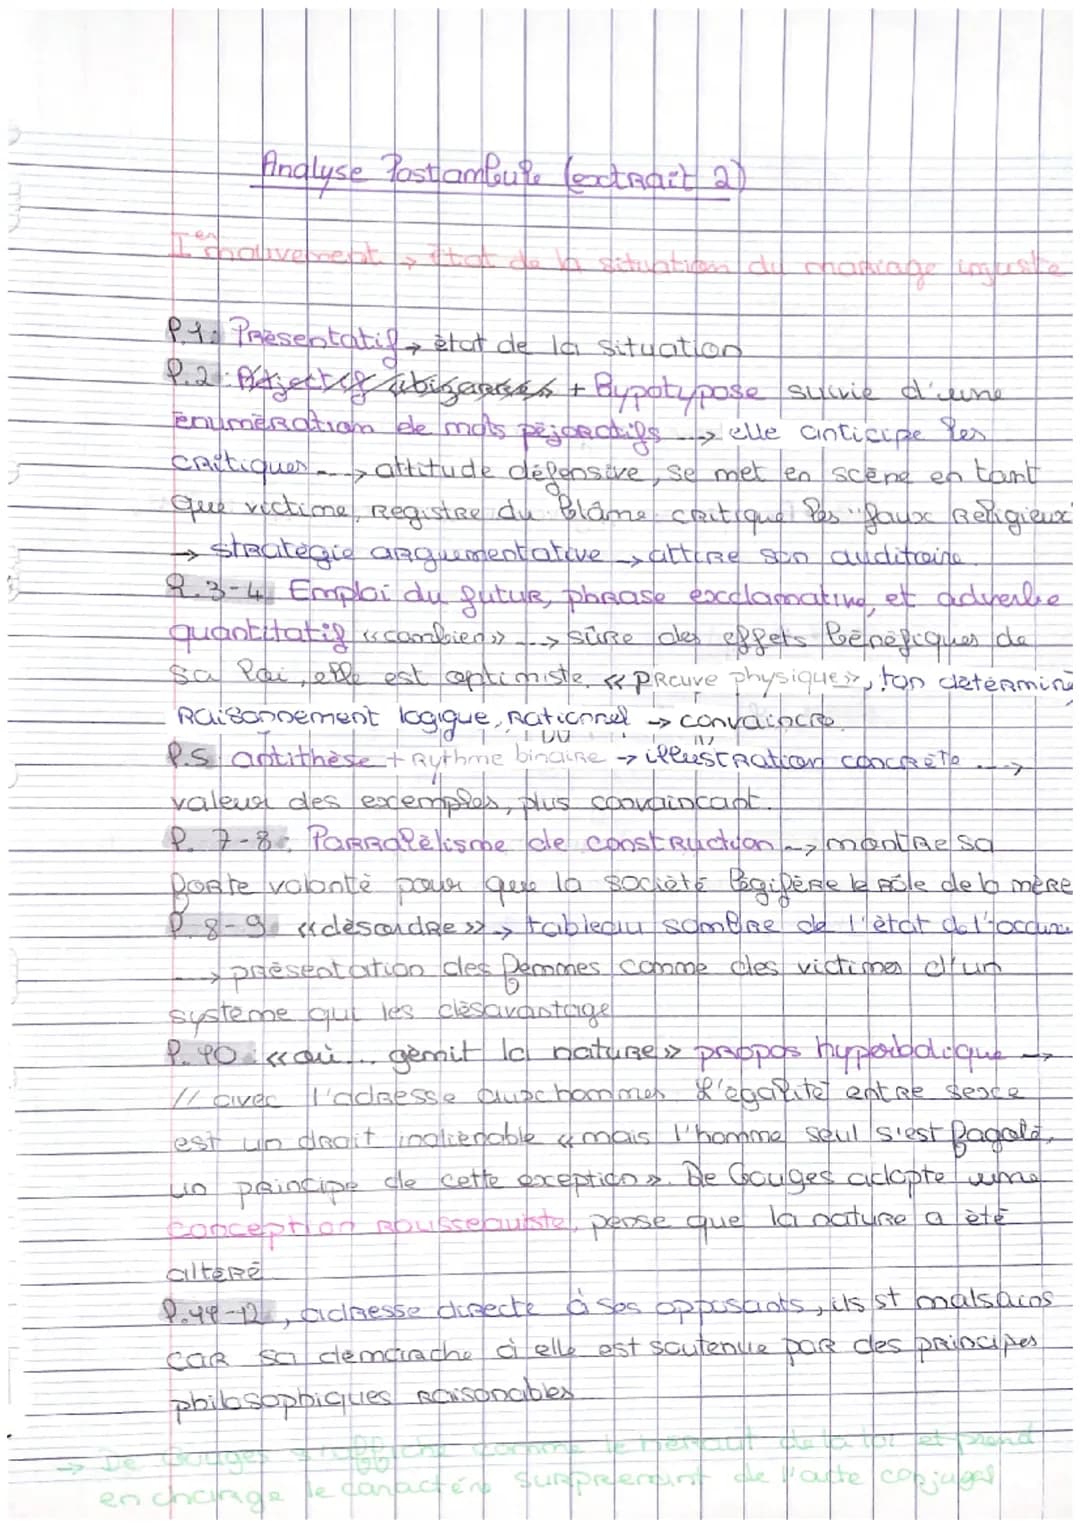 Analyse Postambule (extrait 2)
Ier mouvement → état de la situation du mariage injuste
P.1: Présentatif → état de la situation
P.2: + Hypotypose suivie d'une
énumération de mots péjoratifs --> elle anticipe les
critiques --> attitude défensive, se met en scène en tant
que victime, Registre du blâme critique les "faux Religieux"
→ stratégie argumentative → attire son auditoire.
P.3-4 Emploi du futur, phrase exclamative, et adverbe
quantitatif «combien» --> sûre des effets bénéfiques de
sa loi, elle est optimiste. « preuve physique », ton déterminé
Raisonnement logique, Rationnel → convaincre.
P.5 antithèse + Rythme binaire → illustration concrète -->
valeur des exemples, plus convaincant.
P. 7-8: Parralélisme de construction --> montre sa
forte volonté pour que la société légifère le rôle de la mère
P. 8-9 «désordre» → tableau sombre de l'état de l'
--> présentation des femmes comme des victimes d'un
système qui les désavantage
P. 10 : «où ... gémit la nature» propos hyperbolique -->
// avec l'adresse aux hommes. L'égalité entre sexe
est un droit inaliénable « mais l'homme seul s'est fagoté
un principe de cette exception ». De Gouges adopte une
conception Rousseauiste, pense que la nature a été
altéré
P.11-12, adresse directe à ses opposants, ils st malsains
car sa démarache à elle est soutenue par des principes
philosophiques raisonables
→ De Gouges s'affiche comme le héraut de la loi et prend
en charge le caractère surpreenant de l'acte conjugal